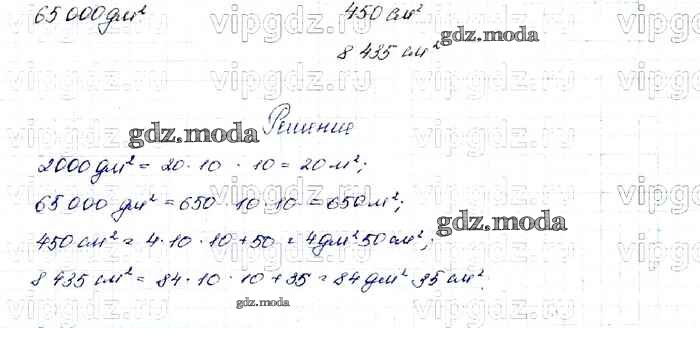 65 000 дм² 450 см²
8 435 см² gdz.moda
gdz.moda Решение
2000 дм² = 20 · 10 · 10 = 20 м²;
65 000 дм² = 650 · 10 · 10 = 650 м²;
gdz.moda
450 см² = 4 · 10 · 10 + 50 = 4 дм² 50 см²;
8 435 см² = 84 · 10 · 10 + 35 = 84 дм² 35 см².
gdz.moda
vipgdz.com